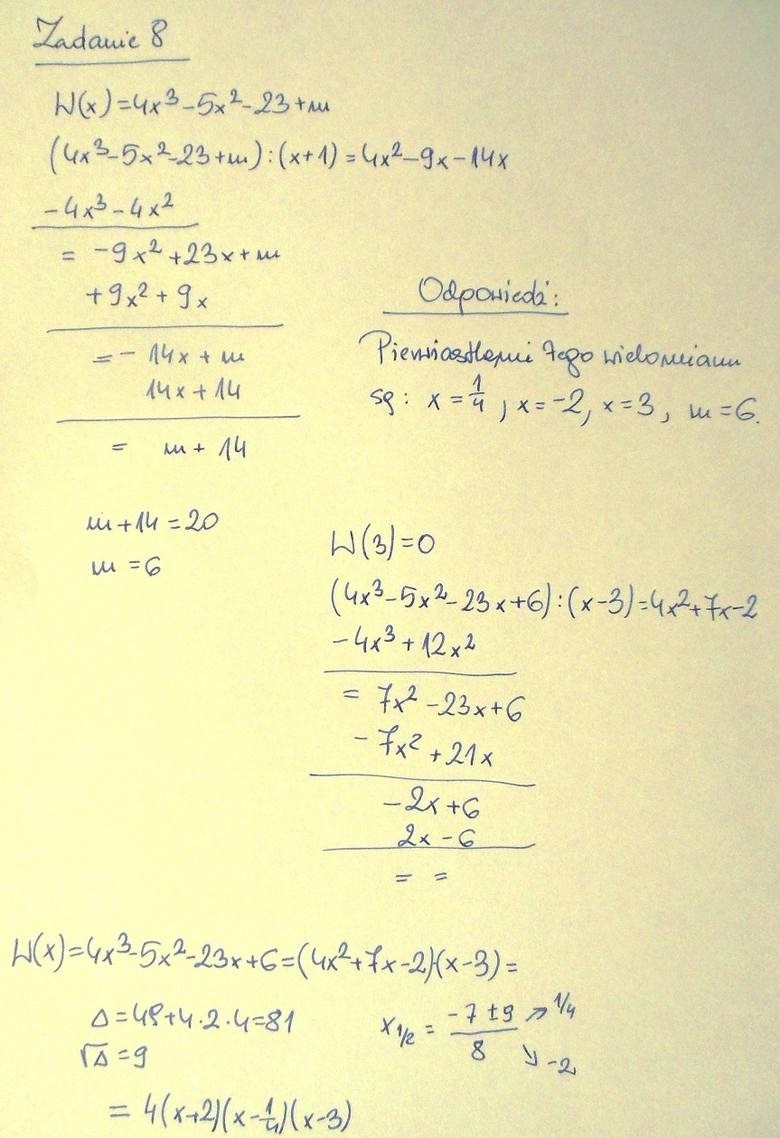 Zadanie 8
W(x)=4x³-5x²-23+m
(4x³-5x²-23+m):(x+1)=4x²-9x-14x
-4x³-4x²
= -9x²+23x+m
+9x²+9x
=- 14x+m
14x+14
= m+14
m+14=20
m=6
Odpowiedź:
Pierwiastkami tego wielomianu
są: x=1/4, x=-2, x=3, m=6.
W(3)=0
(4x³-5x²-23x+6):(x-3)=4x²+7x-2
-4x³+12x²
= 7x²-23x+6
-7x²+21x
-2x+6
2x-6
= =
W(x)=4x³-5x²-23x+6=(4x²+7x-2)·(x-3)=
Δ=49+4·2·4=81
√Δ=9
x₁/₂ = (-7±9)/8 ↗ 1/4 ↘ -2
= 4(x+2)(x-1/4)(x-3)